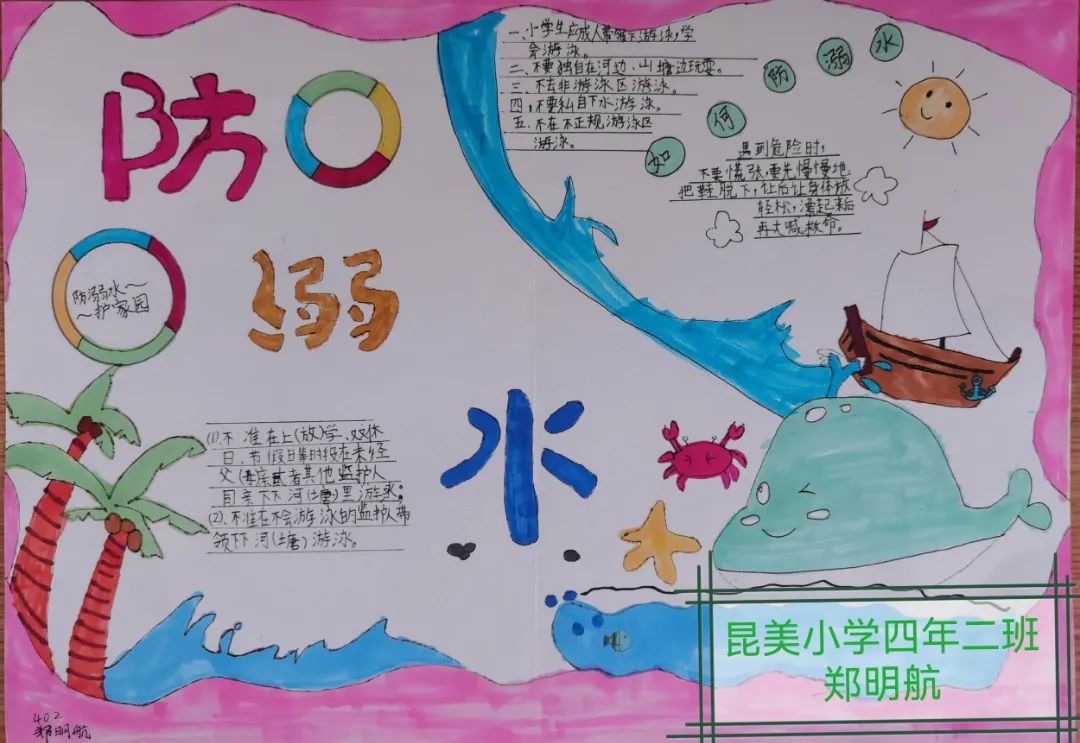 防
溺
水
防溺水～
～护家园
一、小学生应成人带领下游泳,学
会游泳。
二、不要独自在河边、山塘边玩耍。
三、不去非游泳区游泳。
四,不要私自下水游泳。
五、不在不正规游泳区
游泳。
如何防溺水
遇到危险时,
不要慌张,要先慢慢地
把鞋脱下,让后让身体放
轻松,漂起来后
再大喊救命。
(1)不准在上(放)学、双休
日、节假日等时段在未经
父(母)亲或者其他监护人
同亲下下河(塘)里游泳;
(2)、不准在不会游泳的监护人带
领下下河(塘)游泳。
402
郑明航
昆美小学四年二班
郑明航